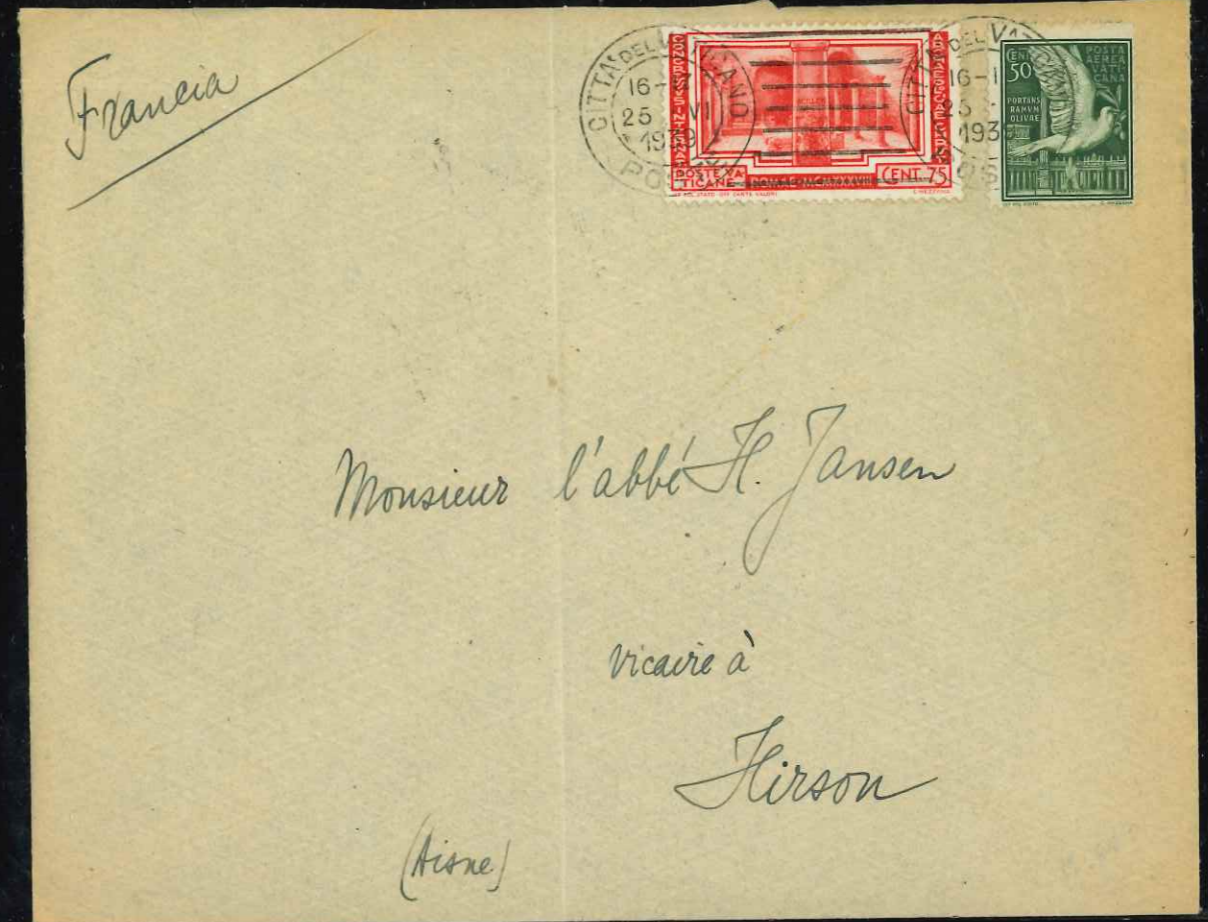 Francia
CITTA' DEL VATICANO
16-
25 VI
1939
POSTE
CENT. 75
POSTE VA
TICANE
CITTA' DEL VATICANO
16-1
25
193
CENT
50
POSTA
AEREA
VATI
CANA
PORTANS
RAMVM
OLIVAE
Monsieur l'abbé H. Jansen
vicaire à
Hirson
(Aisne)